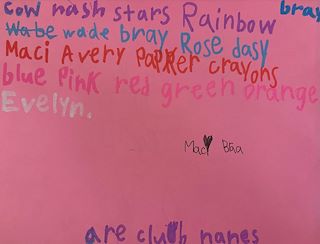 cow nash stars Rainbow bray
Wabe wade bray Rose dasy
Maci Avery Parker crayons
blue Pink red green orange
Evelyn.
Maci
are club names